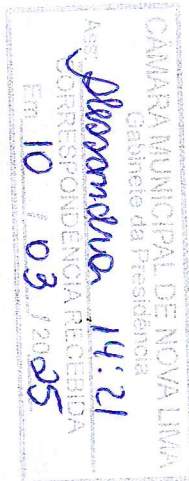 CÂMARA MUNICIPAL DE NOVA LIMA
Gabinete da Presidência
Ass. Alessandra 14:21
CORRESPONDÊNCIA RECEBIDA
Em 10 / 03 / 2025